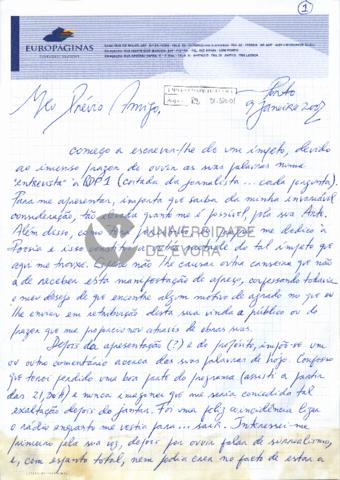 1
EUROPÁGINAS
Porto
9 Janeiro 2002
Meu Prévio Amigo,
começo a escrever-lhe de um ímpeto, devido
ao imenso prazer de ouvir as suas palavras numa
"entrevista" à RDP1 (coitada da jornalista ... cada pergunta).
Para me apresentar, importa que saiba da minha invariável
consideração, tão grande me é possível, pela sua Arte.
Além disso, me dedico à
Poesia e isso parte de tal ímpeto que
aqui me trouxe. Espero não lhe causar outra canseira que não
a de receber esta manifestação de apreço, confessando todavia
o meu desejo de que encontre algum motivo de agrado no que eu
lhe enviar em retribuição desta sua vinda a público ou do
prazer que me proporcionou através de obras suas.
Depois da apresentação (?) e do propósito, impõe-se um
ou outro comentário acerca das suas palavras de hoje. Confesso
que terei perdido uma boa parte do programa (assisti a partir
das 21,30h) e nunca imaginei que me seria concedida tal
exaltação depois do jantar. Foi uma feliz coincidência ligar
o rádio enquanto me vestia para ... sair. Interessei-me
primeiro pela sua voz, depois por ouvir falar de surrealismo,
e, com espanto total, nem podia crer no facto de estar a
UNIVERSIDADE
DE ÉVORA